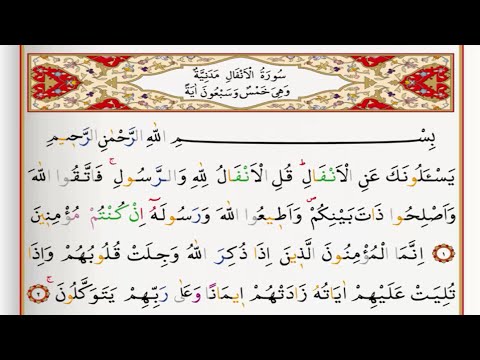 سُورَةُ الْاَنْفَالِ مَدَنِيَّةٌ
وَهِيَ خَمْسٌ وَسَبْعُونَ اٰيَةً
بِسْمِ اللّٰهِ الرَّحْمٰنِ الرَّحٖيمِ
يَسْـَٔلُونَكَ عَنِ الْاَنْفَالِۜ قُلِ الْاَنْفَالُ لِلّٰهِ وَالرَّسُولِۚ فَاتَّقُوا اللّٰهَ
وَاَصْلِحُوا ذَاتَ بَيْنِكُمْۖ وَاَطٖيعُوا اللّٰهَ وَرَسُولَهُٓ اِنْ كُنْتُمْ مُؤْمِنٖينَ
﴿١﴾ اِنَّمَا الْمُؤْمِنُونَ الَّذٖينَ اِذَا ذُكِرَ اللّٰهُ وَجِلَتْ قُلُوبُهُمْ وَاِذَا
تُلِيَتْ عَلَيْهِمْ اٰيَاتُهُ زَادَتْهُمْ اٖيمَانًا وَعَلٰى رَبِّهِمْ يَتَوَكَّلُونَۚ ﴿٢﴾